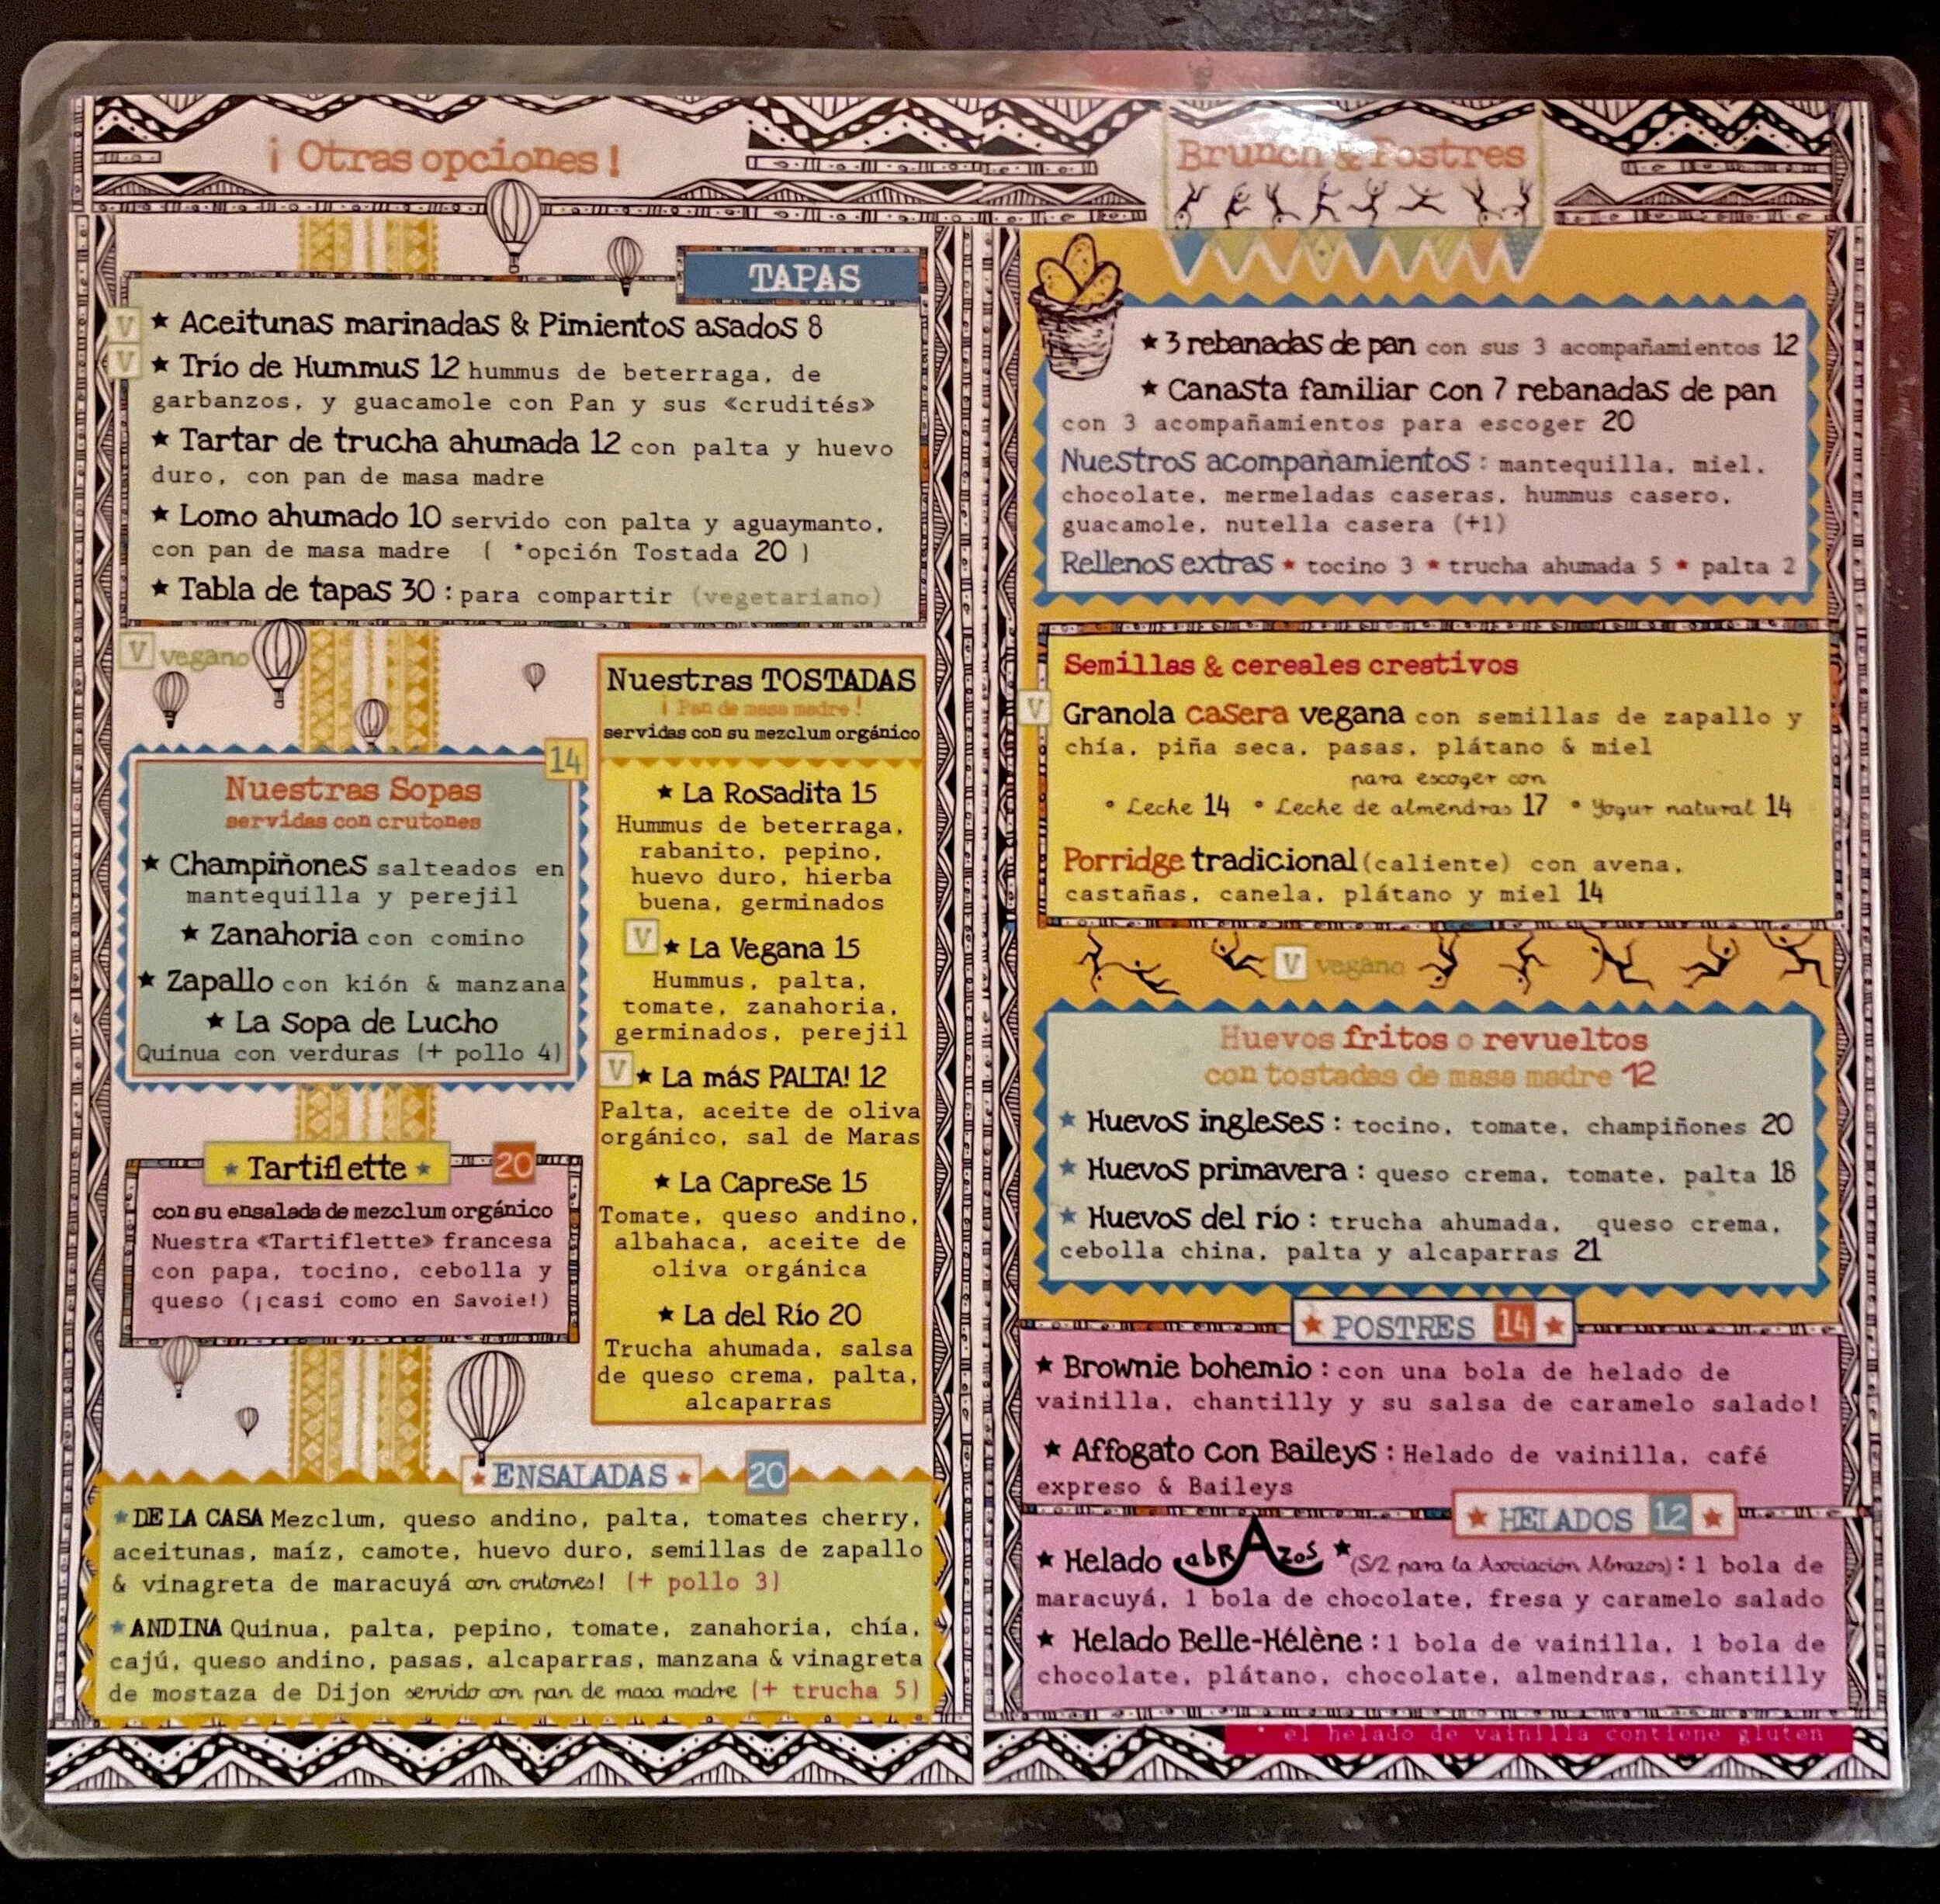 ¡ Otras opciones !
TAPAS
V ★ Aceitunas marinadas & Pimientos asados 8
V ★ Trío de Hummus 12 hummus de beterraga, de
garbanzos, y guacamole con Pan y sus «crudités»
★ Tartar de trucha ahumada 12 con palta y huevo
duro, con pan de masa madre
★ Lomo ahumado 10 servido con palta y aguaymanto,
con pan de masa madre ( *opción Tostada 20 )
★ Tabla de tapas 30 : para compartir (vegetariano)
V vegano
14
Nuestras Sopas
servidas con crutones
★ Champiñones salteados en
mantequilla y perejil
★ Zanahoria con comino
★ Zapallo con kión & manzana
★ La Sopa de Lucho
Quinua con verduras (+ pollo 4)
★ Tartiflette ★ 20
con su ensalada de mezclum orgánico
Nuestra «Tartiflette» francesa
con papa, tocino, cebolla y
queso (¡casi como en Savoie!)
Nuestras TOSTADAS
¡ Pan de masa madre !
servidas con su mezclum orgánico
★ La Rosadita 15
Hummus de beterraga,
rabanito, pepino,
huevo duro, hierba
buena, germinados
V ★ La Vegana 15
Hummus, palta,
tomate, zanahoria,
germinados, perejil
V ★ La más PALTA! 12
Palta, aceite de oliva
orgánico, sal de Maras
★ La Caprese 15
Tomate, queso andino,
albahaca, aceite de
oliva orgánica
★ La del Río 20
Trucha ahumada, salsa
de queso crema, palta,
alcaparras
★ ENSALADAS ★ 20
★ DE LA CASA Mezclum, queso andino, palta, tomates cherry,
aceitunas, maíz, camote, huevo duro, semillas de zapallo
& vinagreta de maracuyá con crutones! (+ pollo 3)
★ ANDINA Quinua, palta, pepino, tomate, zanahoria, chía,
cajú, queso andino, pasas, alcaparras, manzana & vinagreta
de mostaza de Dijon servido con pan de masa madre (+ trucha 5)
Brunch & Postres
★ 3 rebanadas de pan con sus 3 acompañamientos 12
★ Canasta familiar con 7 rebanadas de pan
con 3 acompañamientos para escoger 20
Nuestros acompañamientos : mantequilla, miel,
chocolate, mermeladas caseras, hummus casero,
guacamole, nutella casera (+1)
Rellenos extras ★ tocino 3 ★ trucha ahumada 5 ★ palta 2
Semillas & cereales creativos
V Granola casera vegana con semillas de zapallo y
chía, piña seca, pasas, plátano & miel
para escoger con
• Leche 14 • Leche de almendras 17 • Yogur natural 14
Porridge tradicional (caliente) con avena,
castañas, canela, plátano y miel 14
V vegano
Huevos fritos o revueltos
con tostadas de masa madre 12
★ Huevos ingleses : tocino, tomate, champiñones 20
★ Huevos primavera : queso crema, tomate, palta 18
★ Huevos del río : trucha ahumada, queso crema,
cebolla china, palta y alcaparras 21
★ POSTRES 14 ★
★ Brownie bohemio : con una bola de helado de
vainilla, chantilly y su salsa de caramelo salado!
★ Affogato con Baileys : Helado de vainilla, café
expreso & Baileys
★ HELADOS 12 ★
★ Helado abrAzos ★ (S/2 para la Asociación Abrazos) : 1 bola de
maracuyá, 1 bola de chocolate, fresa y caramelo salado
★ Helado Belle-Hélène : 1 bola de vainilla, 1 bola de
chocolate, plátano, chocolate, almendras, chantilly
* el helado de vainilla contiene gluten